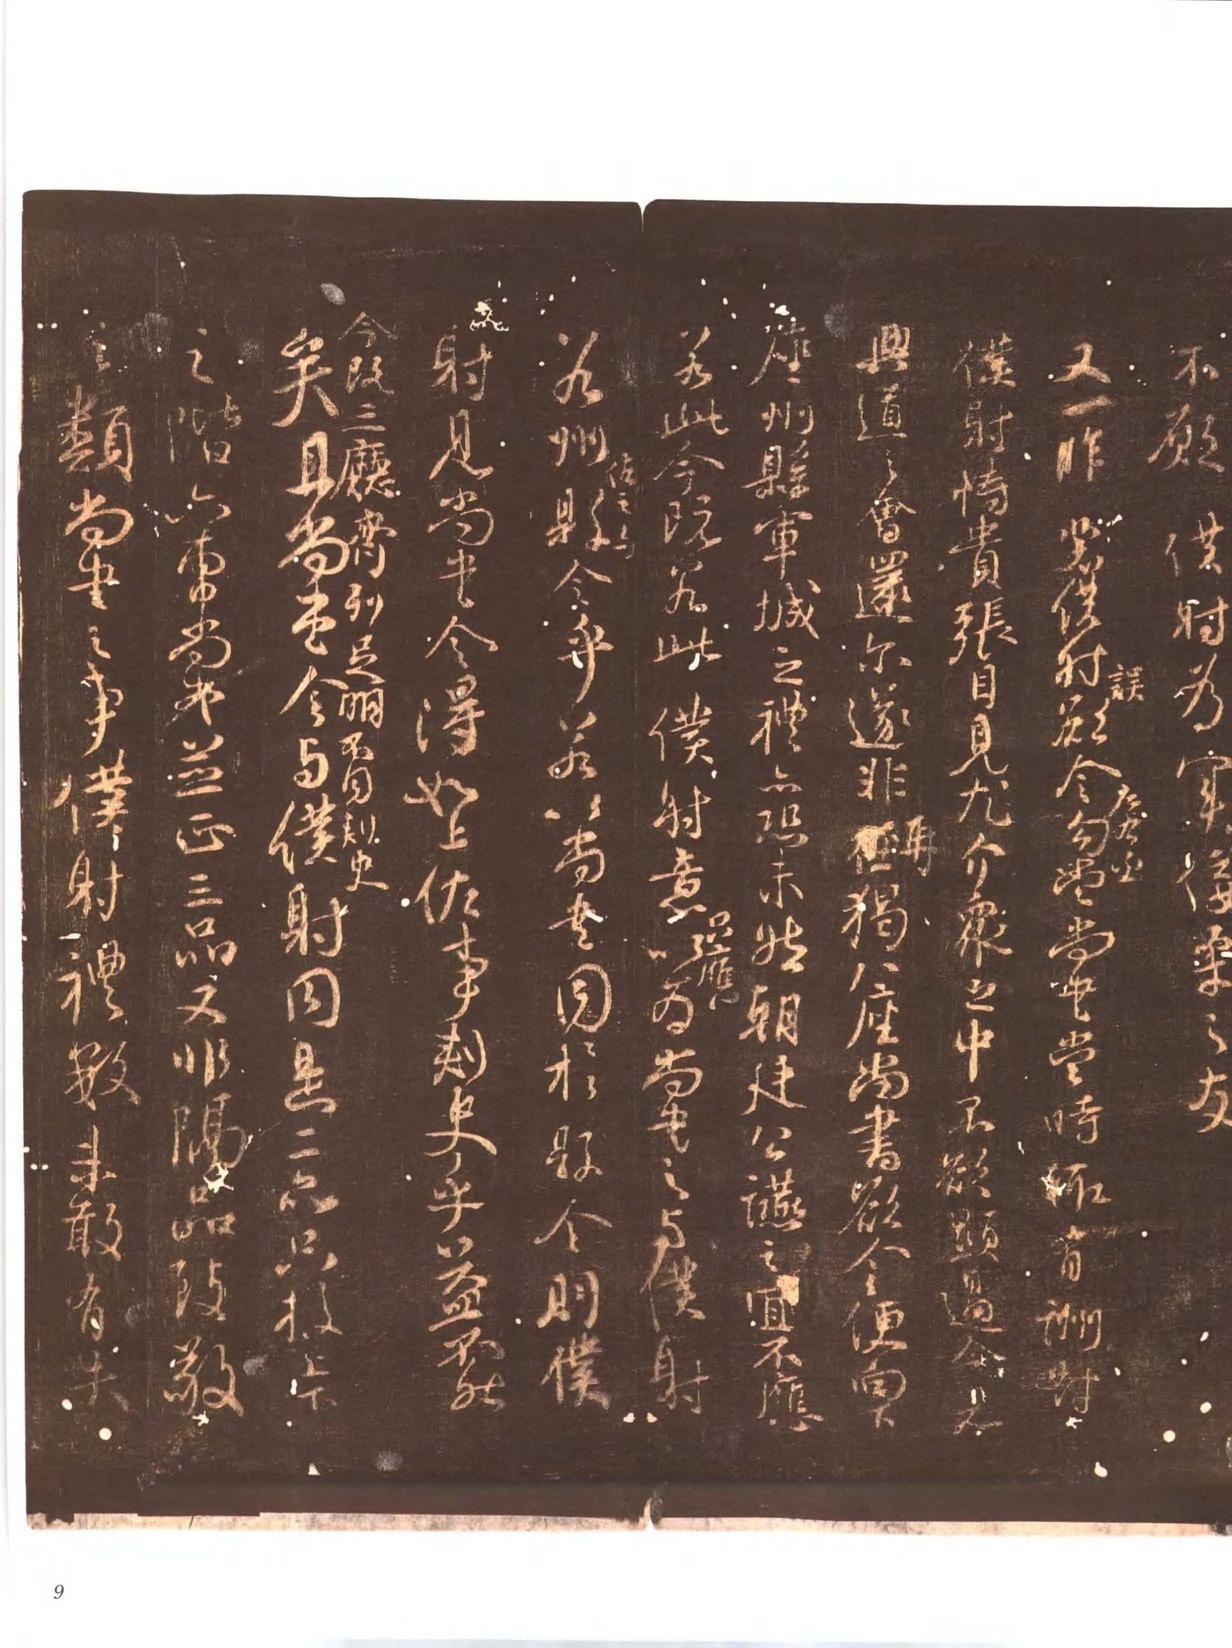 不顧僕射爲軍容佞柔之友
又一昨裴僕射誤欲令左右丞勾當尚書當時輒有酬對
僕射恃貴張目見尤介衆之中不欲顯過今者
興道之會還尔遂非再猲八座尚書欲令便向下
座州縣軍城之禮亦恐未然朝廷公讌之宜不應
若此今既若此僕射意只應以爲尚書之与僕射
若州佐之与縣令乎若以尚書同於縣令則僕
射見尚書令得如上佐事刺史乎益不然
矣今既三廳齊列足明不同刺史且尚書令与僕射同是二品只校上下
之階六曹尚書並正三品又非隔品致敬
之類尚書之事僕射禮數未敢有失
9